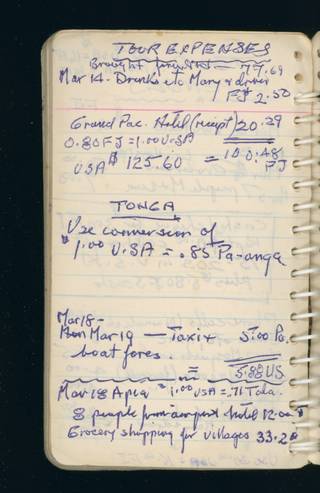 TOUR EXPENSES
Brought forward — 77.69
Mar 14. Drinks etc Mary & driver
FJ 2.50
Grand Pac. Hotel (receipt) 20.29
0.80 FJ = 1.00 USA
USA $ 125.60 = 100.48 FJ
TONGA
Use conversion of
$1.00 USA = .85 Pa-anga
Mar 18 -
Mar 19 — Taxi + 5.00 Pa.
boat fares.
= 5.88 US
Mar 18 Apia $1.00 USA = .71 Tala.
8 people from airport hotel 12.00
Grocery shopping for villages 33.20